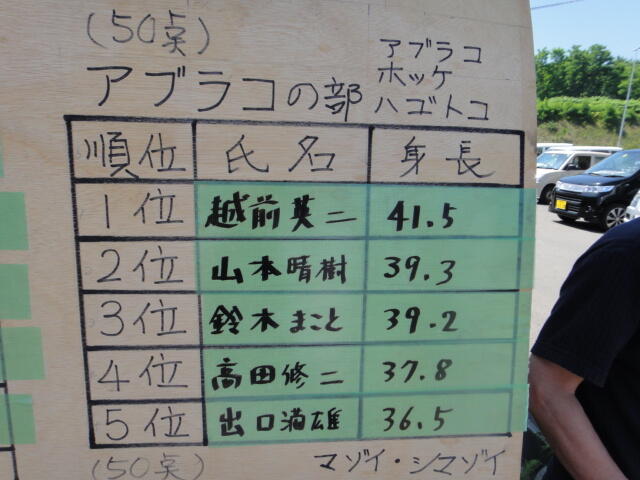 (50点)
アブラコの部
アブラコ
ホッケ
ハゴトコ
順位 氏名 身長
1位 越前英二 41.5
2位 山本晴樹 39.3
3位 鈴木まこと 39.2
4位 高田修二 37.8
5位 出口満雄 36.5
(50点)
マゾイ・シマゾイ